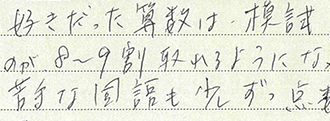 好きだった算数は 模試
のが 8〜9割取れるようにな
苦手な国語も少しずつ点